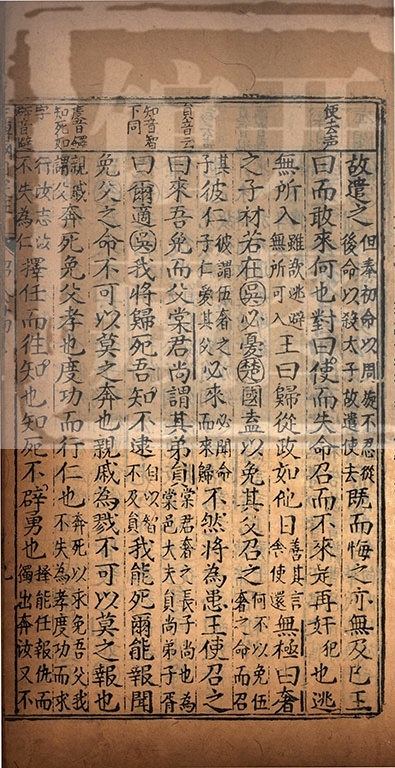 使去声
員音云
知音智
下同
度音鐸
知死如
字
辟音避
故遣之但奉初命以周旋不忍從後命以殺太子故遣使去既而悔之亦無及已王
曰而敢來何也對曰使而失命召而不來是再奸犯也逃
無所入雖欲逃避無所可入王曰歸從政如他日善其言舍使還無極曰奢
之子材若在吳必憂楚國盍以免其父召之何不以免伍奢之命而召
其子彼仁彼謂伍奢之子仁愛其父必來必聞命而來歸不然將為患王使召之
曰來吾免而父棠君尚謂其弟員棠君奢之長子尚也為棠邑大夫員尚弟子胥
曰爾適吳我將歸死吾知不逮自以智不及員我能死爾能報聞
免父之命不可以莫之奔也親戚為戮不可以莫之報也
親戚謂父奔死免父孝也度功而行仁也奔死以求免吾父我不失為孝度功而求
行汝志不失為仁擇任而往知也知死不辟勇也擇能任報仇而獨出奔汝又不